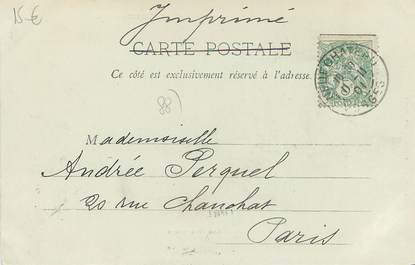 15 €
Imprimé
CARTE POSTALE
Ce côté est exclusivement réservé à l'adresse.
88)
Mademoiselle
Andrée Perquel
20 rue Chanchat
Paris